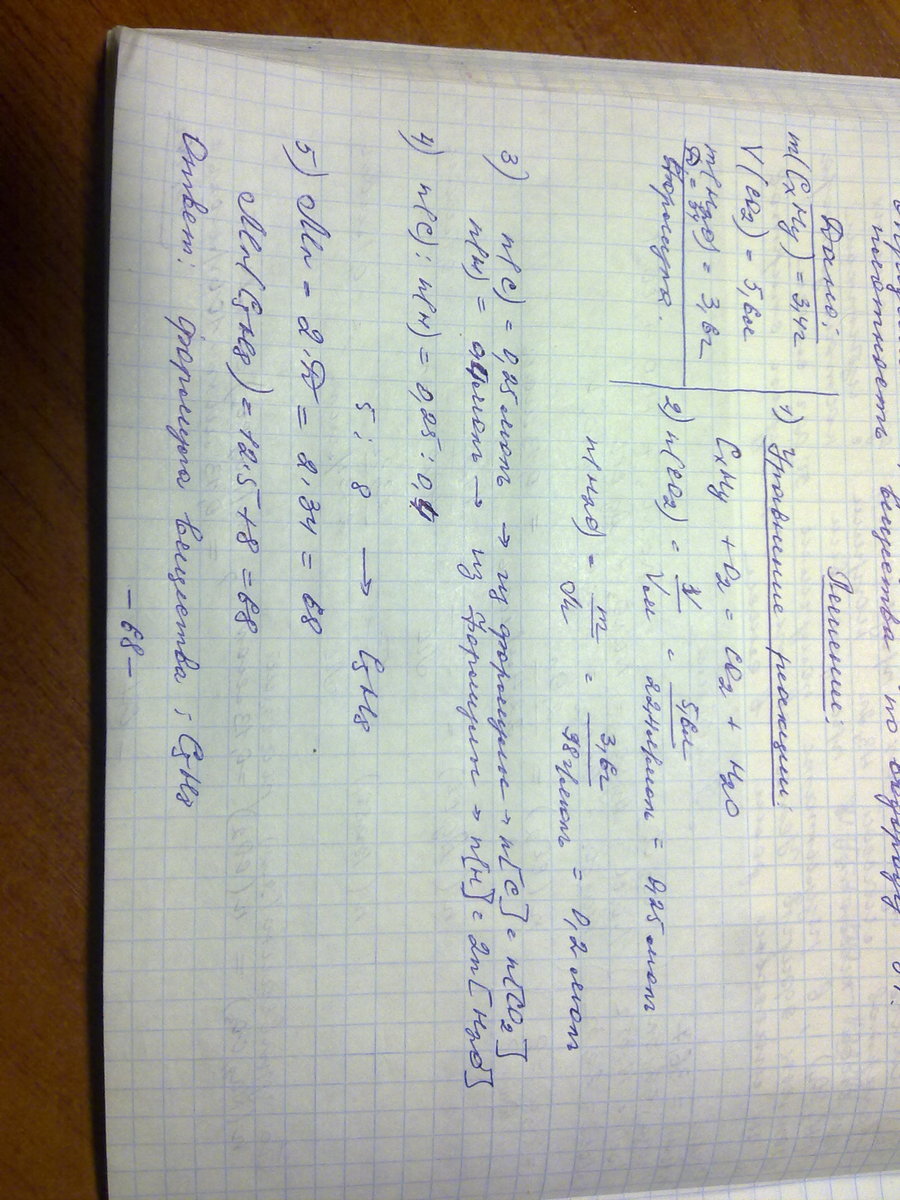 плотность вещества по водороду 34.
Дано:
m(CxHy) = 3,4г
V(CO2) = 5,6л
m(H2O) = 3,6г
D = 34
Формула.
Решение:
1) Уравнение реакции:
CxHy + O2 = CO2 + H2O
2) n(CO2) = V/Vм = 5,6л/22,4л/моль = 0,25 моль
n(H2O) = m/M = 3,6г/18г/моль = 0,2 моль
3) n(C) = 0,25 моль → из формулы → n[C] = n[CO2]
n(H) = 0,4моль → из формулы → n[H] = 2n[H2O]
4) n(C) : n(H) = 0,25 : 0,4
5 : 8 → C5H8
5) Mr = 2·D = 2·34 = 68
Mr(C5H8) = 12·5+8 = 68
Ответ: формула вещества: C5H8
- 68 -